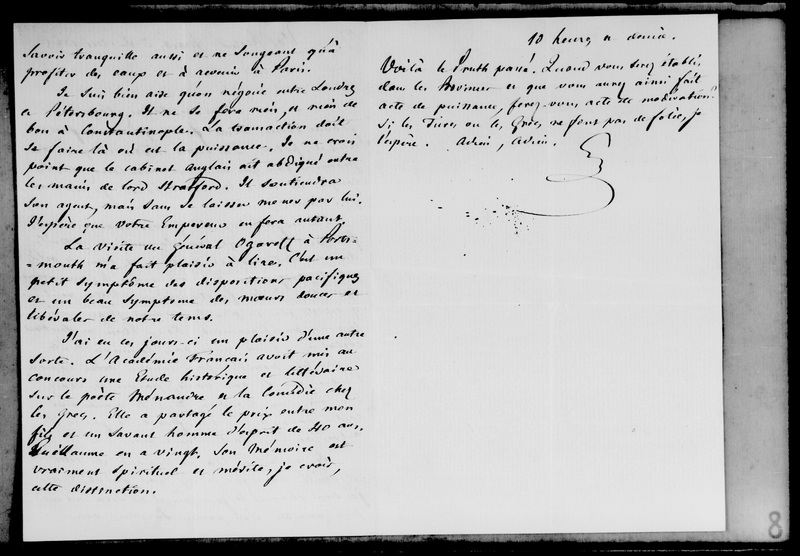 savoir tranquille aussi et ne songeant qu'à
profiter des eaux et à revenir à Paris.
Je suis bien aise qu'on négocie entre Londres
et Pétersbourg. Il ne se fera rien, et rien de
bon à Constantinople. La transaction doit
se faire là où est la puissance. Je ne crois
point que le cabinet Anglais ait abdiqué entre
les mains de lord Stratford. Il soutiendra
son agent, mais sans se laisser mener par lui.
J'espère que votre Empereur en fera autant.
La visite du général Ogareff à Ports-
=mouth m'a fait plaisir à lire. C'est un
petit symptôme des dispositions pacifiques
et un beau symptome des mœurs douces et
libérales de notre tems.
J'ai eu ces jours-ci un plaisir d'une autre
sorte. L'Académie Francaise avoit mis au
concours une Etude historique et littéraire
sur le poète Ménandre et la Comédie chez
les Grecs. Elle a partagé le prix entre mon
fils et un savant homme d'esprit de 40 ans.
Guillaume en a vingt. Son Mémoire est
vraiment spirituel et mérite, je crois,
cette distinction.
10 heures et demie.
Voilà le Pruth passé. Quand vous serez établis
dans les Provinces et que vous aurez ainsi fait
acte de puissance, ferez-vous acte de modération?
Si les Turcs ou les Grecs ne font pas de folies, je
l'espère. Adieu, adieu.
8